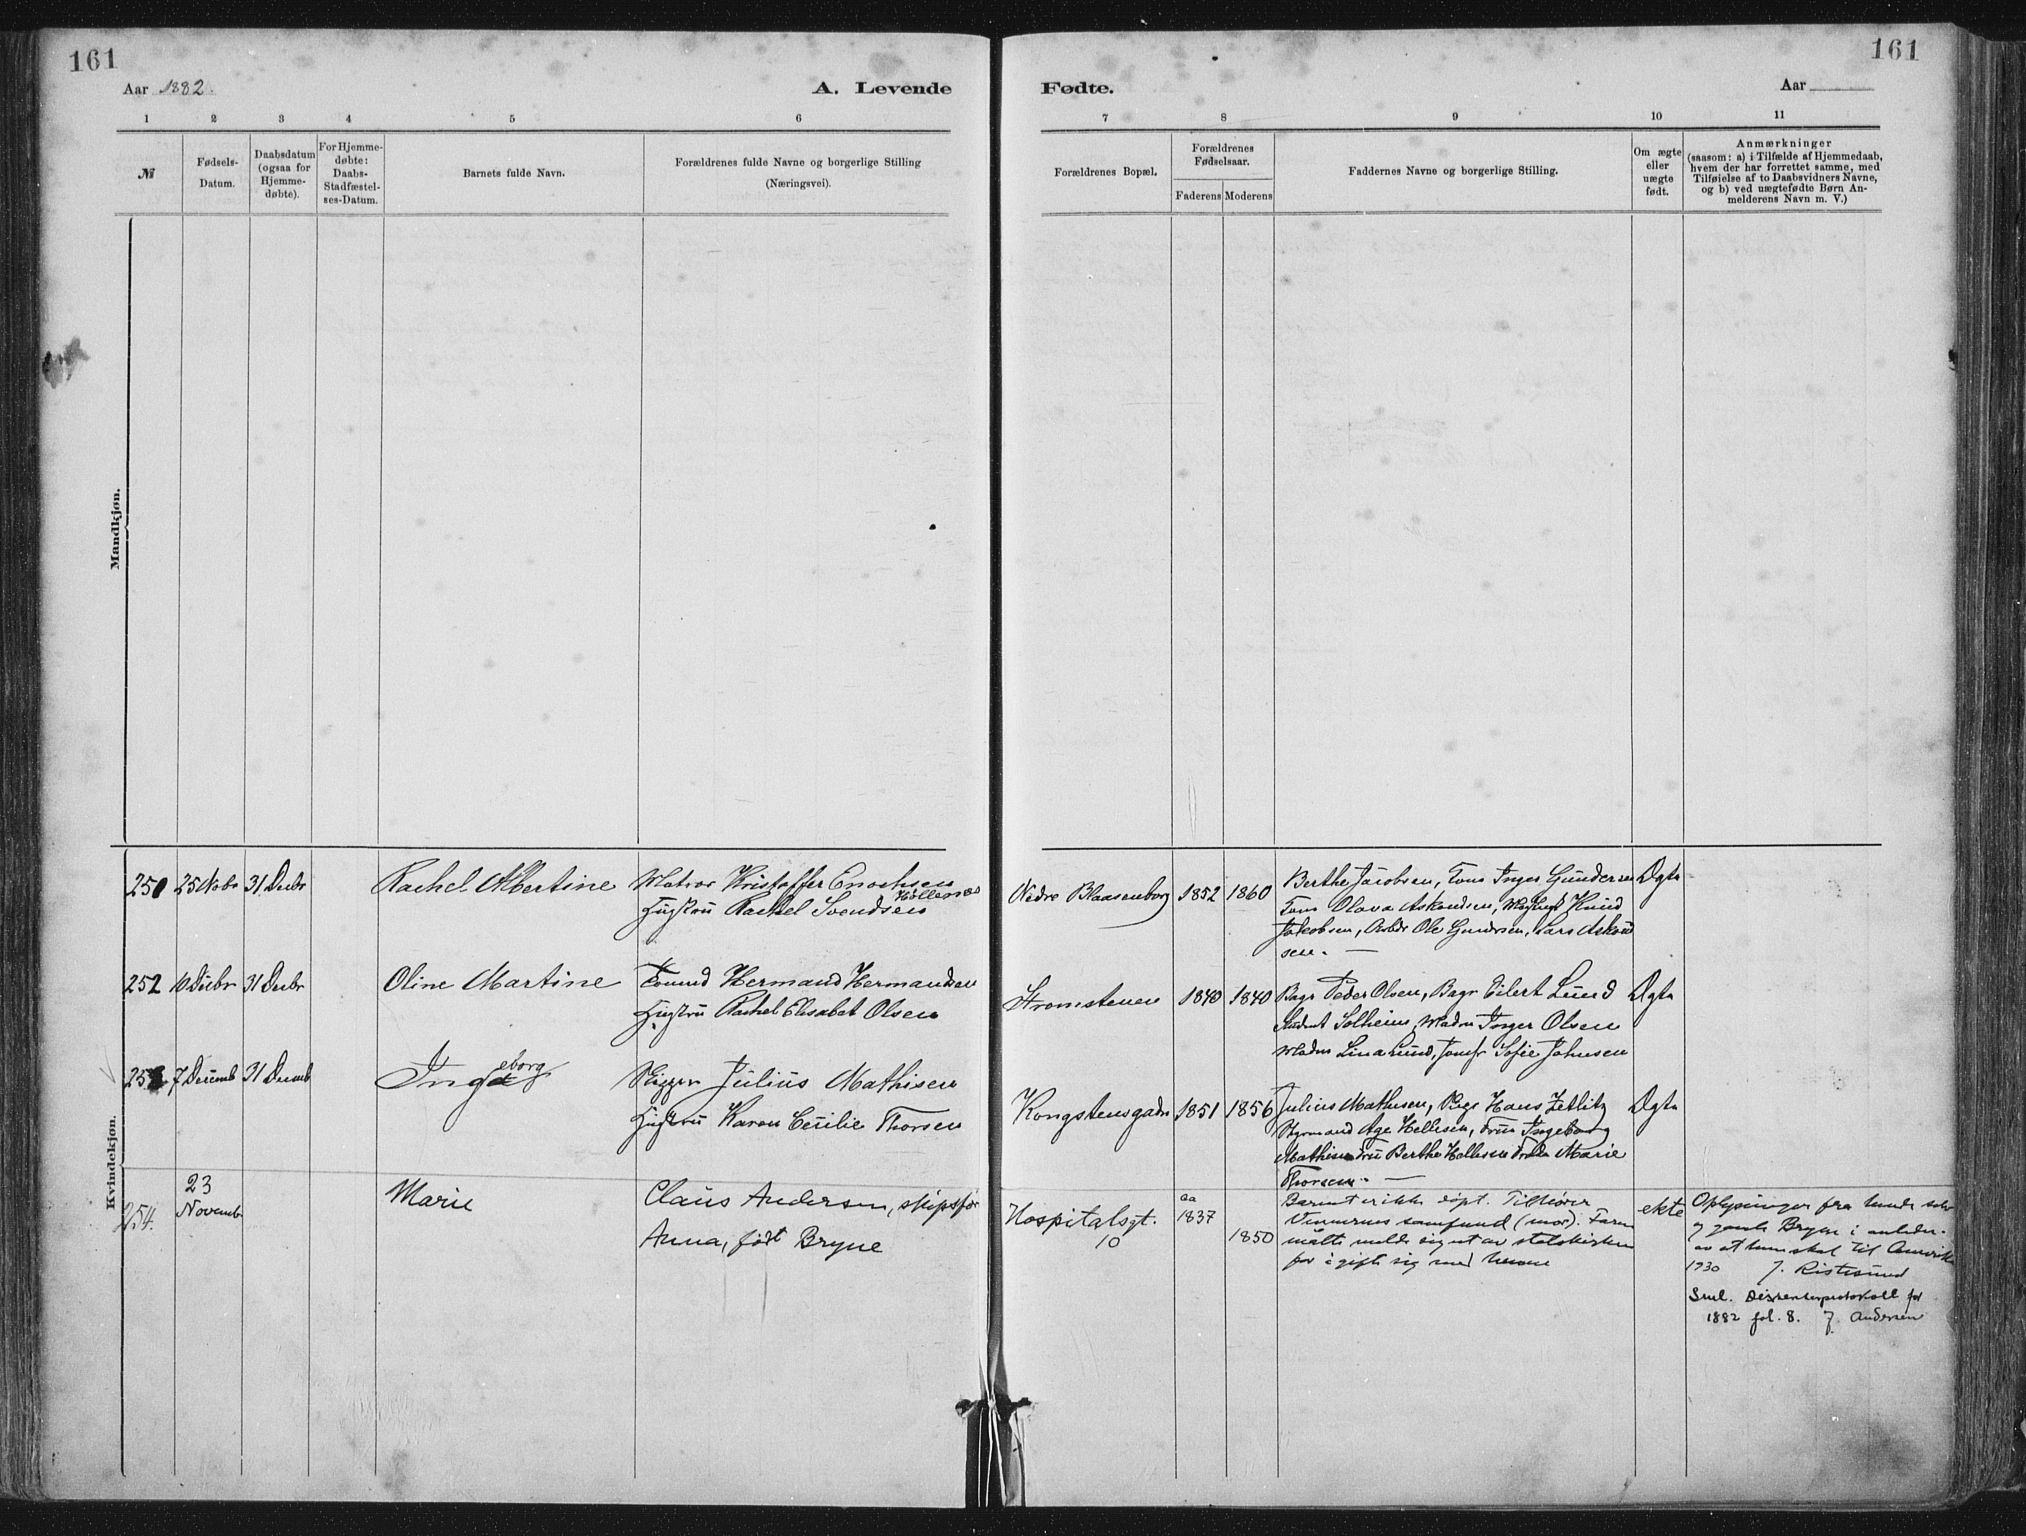 161
161
Aar 1882.
A. Levende
Fødte.
Aar
1 2 3 4 5 6
7 8 9 10 11
№
Fødsels-
Datum.
Daabsdatum
(ogsaa for
Hjemme-
døbte).
For Hjemme-
døbte:
Daabs-
Stadfæstel-
ses-Datum.
Barnets fulde Navn.
Forældrenes fulde Navne og borgerlige Stilling
(Næringsvei).
Forældrenes Bopæl.
Forældrenes
Fødselsaar.
Faderens Moderens
Faddernes Navne og borgerlige Stilling.
Om ægte
eller
uægte
født.
Anmærkninger
(saasom: a) i Tilfælde af Hjemmedaab,
hvem der har forrettet samme, med
Tilføielse af to Daabsvidners Navne,
og b) ved uægtefødte Børn An-
melderens Navn m. V.)
Mandkjøn.
Kvindekjøn.
251 25 Nobr 31 Decbr
Rachel Albertine
Matros Kristoffer Enochsen
Hustru Rachel Svendsen
Nedre Blaasenborg
1852 1860
Berthe Jacobsen, Inger Gundersen
Olava Askeudsen, Knud
Jakobsen, Arbdr Ole Gundersen, Lars
sen. —
Dgtn
252 10 Decbr 31 Decbr
Oline Martine
Hermand Hermandsen
Hustru Rachel Elisabet Olsen
Stromstenen
1840 1840
Bagr Peder Olsen, Bagr Eilert Lund
Student Solheim, Madm Inger Olsen
Madm Lina Lund, Jomfr Sofie Johnsen
Dgtn
253 7 Decemb 31 Decemb
Ingeborg
Rigger Julius Mathisen
Hustru Karen Cecilie Thorsen
Kongstensgaden
1851 1856
Julius Mathisen, Hans Zetlitz
Styrmand Age Hellesen, Fru Ingeborg
Mathisen Fru Berthe Hellesen Marie
Thorsen. —
Dgtn
254.
23
Novemb
Marie
Claus Andersen, skipsfør
Anna, født Bryne
Hospitalsgt.
10
aa
1837
1850
Barnet er ikke døpt. Tilhører
Vennernes samfund (mor). Faren
måtte melde sig ut av statskirken
for å gifte sig med henne
ekte
Oplysninger fra hende selv
Bryne i anledn.
av at hun skal til Amerika
1930
Sml. Dissenterprotokoll for
1882 fol. 8. J. Andersen